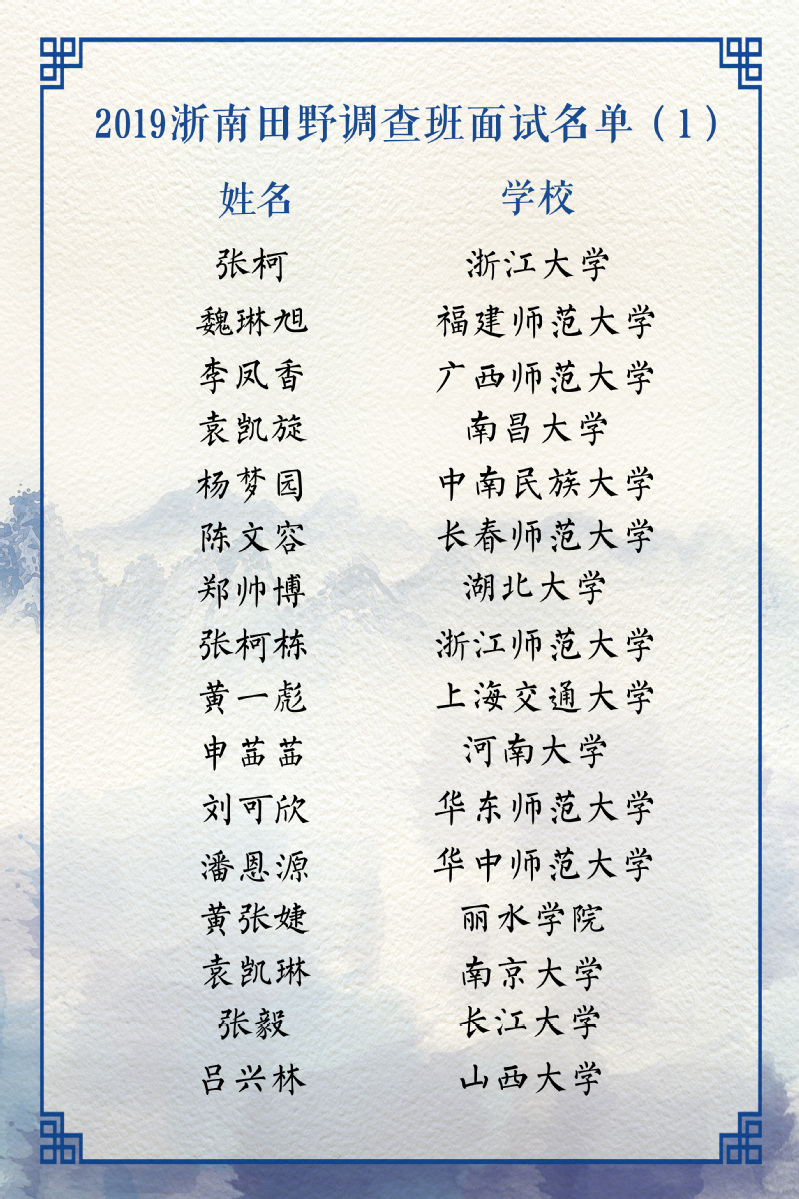 2019浙南田野调查班面试名单（1）
姓名 学校
张柯 浙江大学
魏琳旭 福建师范大学
李凤香 广西师范大学
袁凯旋 南昌大学
杨梦园 中南民族大学
陈文容 长春师范大学
郑帅博 湖北大学
张柯栋 浙江师范大学
黄一彪 上海交通大学
申茁茁 河南大学
刘可欣 华东师范大学
潘恩源 华中师范大学
黄张婕 丽水学院
袁凯琳 南京大学
张毅 长江大学
吕兴林 山西大学